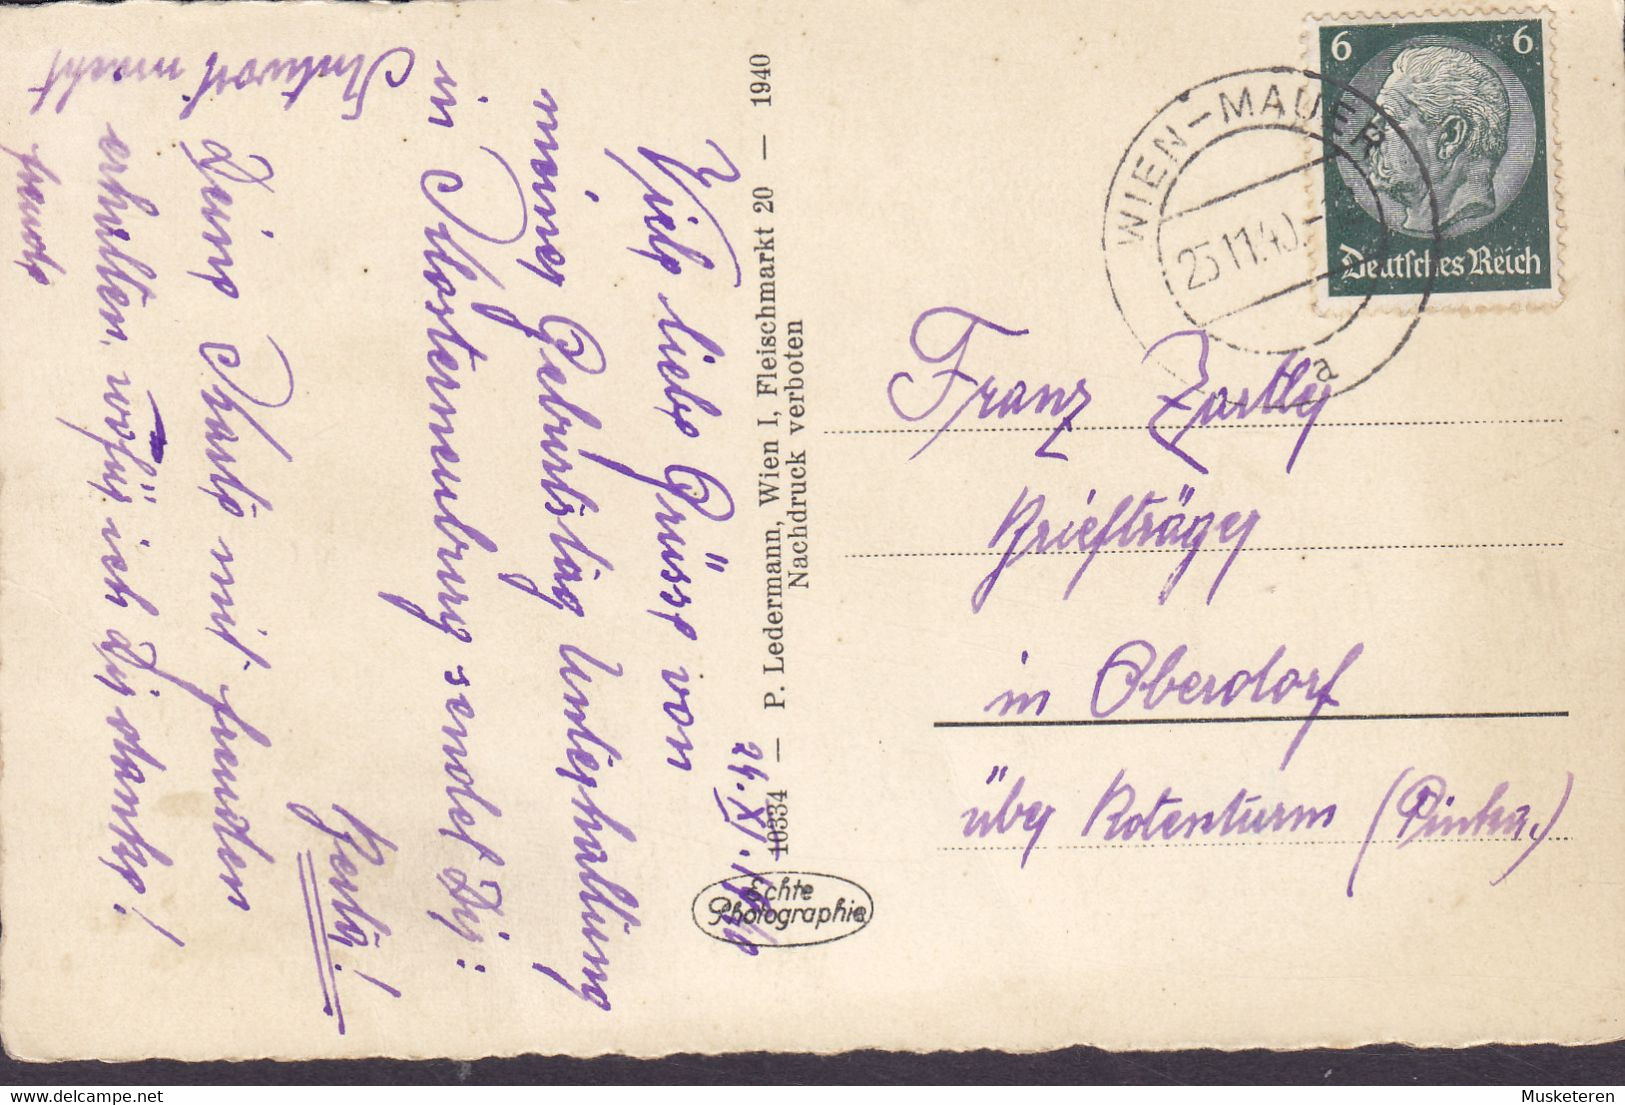 24.XI.1940
Viele liebe Grüsse von
meiner Geburtstag Unterhaltung
in Klosterneuburg sendet Dir:
Berta!
Deine Karte mit Freuden
erhalten, wofür ich Dir danke!
Antwort macht
Freude
10334 — P. Ledermann, Wien I, Fleischmarkt 20 — 1940
Nachdruck verboten
Echte
Photographie
6 6
Deutsches Reich
WIEN-MAUER
25.11.40
a
Franz
Briefträger
in Oberdorf
über Rotenturm (Pinka.)
delcampe.net
Musketeren